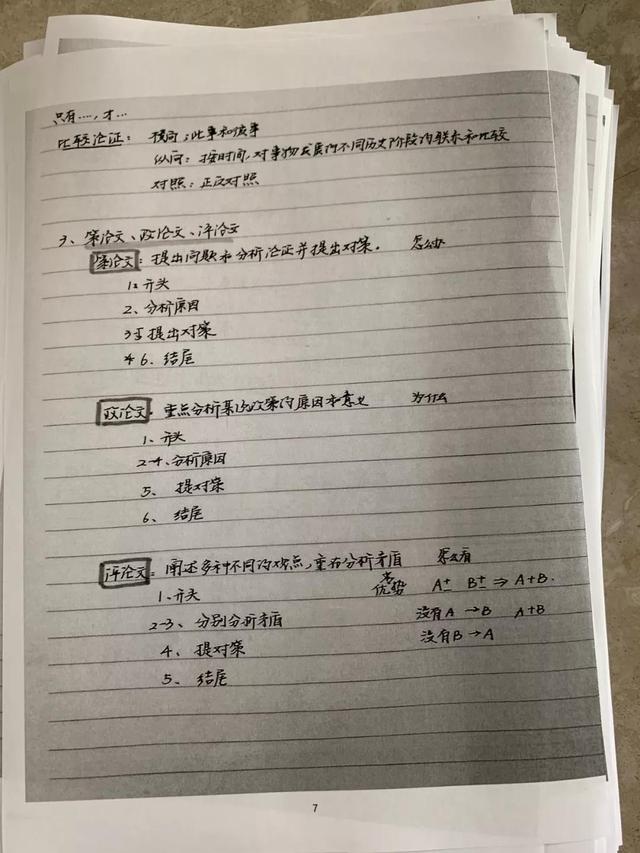 只有……,才…
比较论证: 横向:此事和彼事
纵向:按时间,对事物发展的不同历史阶段的联系和比较
对照:正反对照
3、策论文、政论文、评论文
策论文:提出问题 分析论证并提出对策。 怎么办
1、开头
2、分析原因
3-5 提出对策
6、结尾
政论文:重点分析某项政策的原因和意义 为什么
1、开头
2-4、分析原因
5、提对策
6、结尾
评论文:阐述多种不同的观点,重在分析矛盾 怎么看
1、开头 优势 A+ B+ ⇒ A+B.
2-3、分别分析矛盾 没有A → B A+B
4、提对策 没有B → A
5、结尾
7